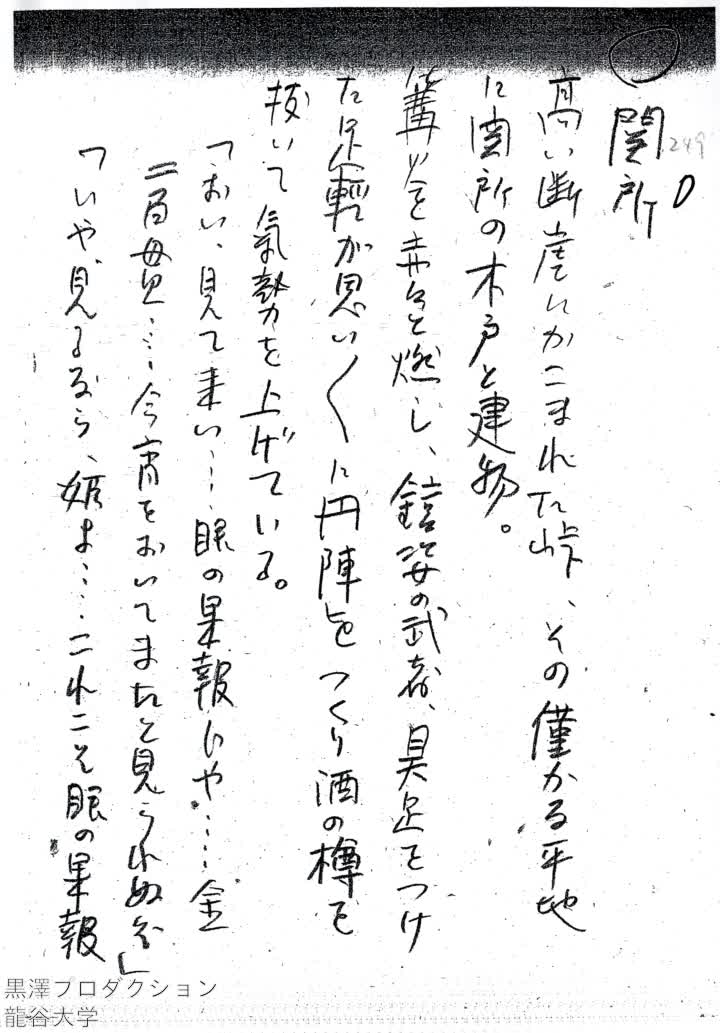 関所
249
高い断崖にかこまれた峠、その僅かる平地
に関所の木戸と建物。
篝火を赤々と燃し、鎧姿の武者、具足をつけ
た足軽が思い〱に円陣をつくり酒の樽を
抜いて氣勢を上げている。
「おい、見て来い…眼の果報じや……金
二百貫…今宵をおいてまたと見られぬぞ」
「いや、見るなら、姫よ……これこそ眼の果報
黒澤プロダクション
龍谷大学